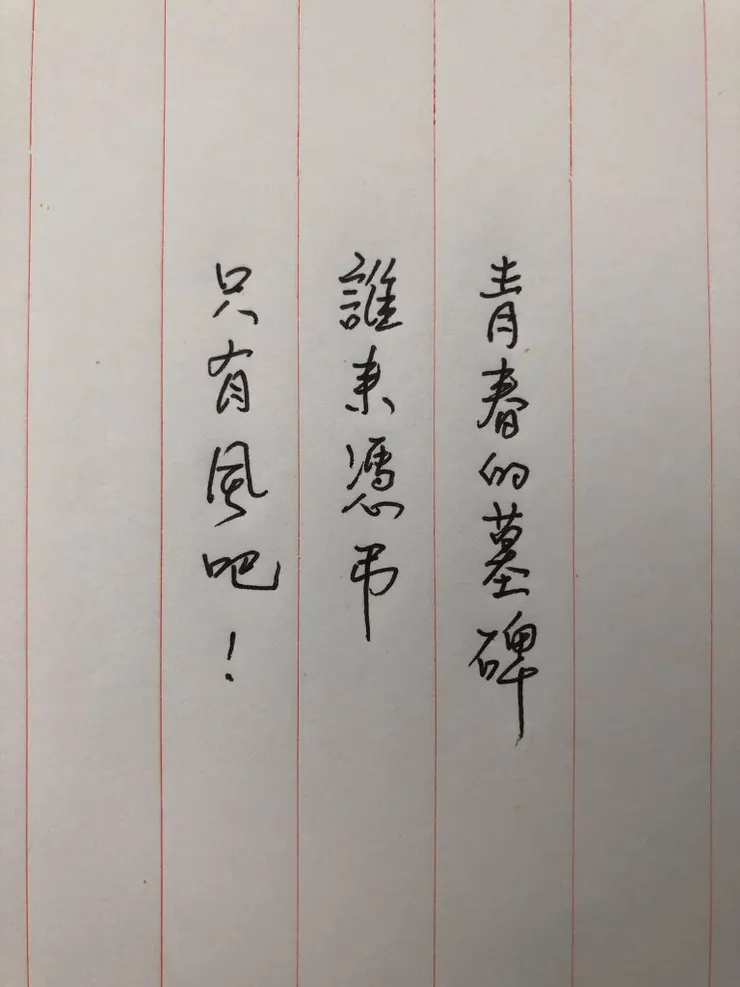 青春的墓碑
誰来憑弔
只有風吧！